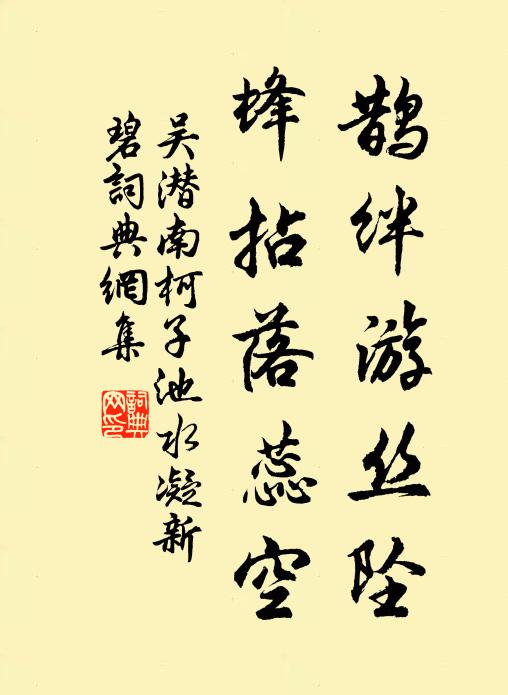 鹊绊游丝坠
蜂拈落蕊空
吴潜南柯子池水凝新
碧詞典網集
詞典网印